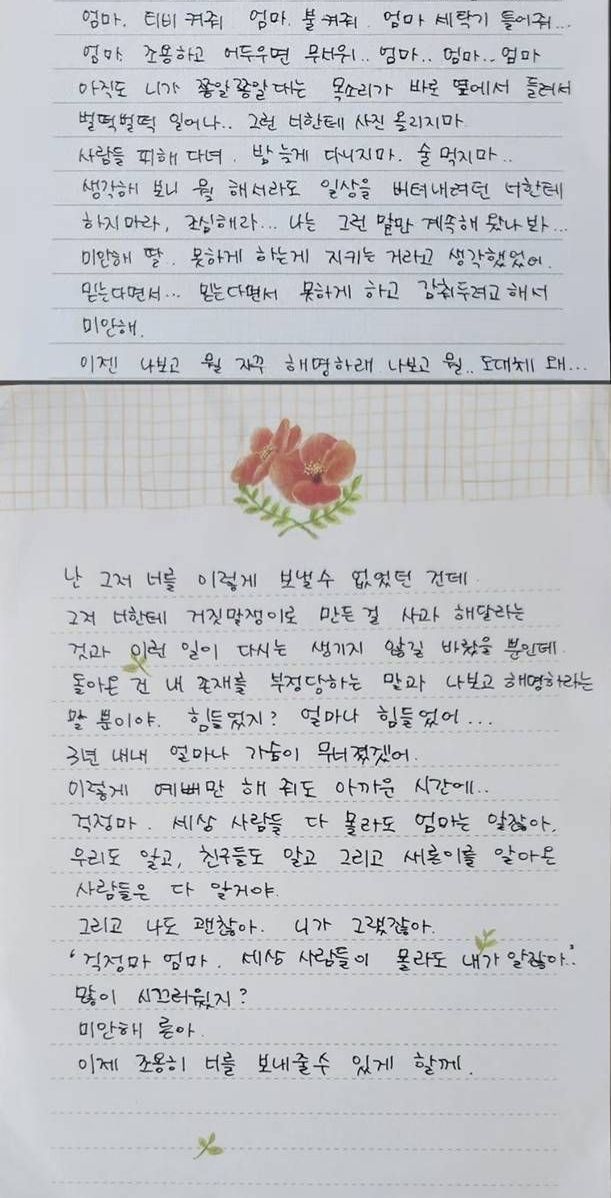 엄마. 티비 켜줘 엄마. 불 켜줘. 엄마 세탁기 틀어줘...
엄마. 조용하고 어두우면 무서워.. 엄마.. 엄마.. 엄마
아직도 니가 쫑알쫑알 대는 목소리가 바로 옆에서 들려서
벌떡벌떡 일어나.. 그런 너한테 사진 올리지마
사람들 피해 다녀. 밤 늦게 다니지마. 술 먹지마..
생각해 보니 뭘 해서라도 일상을 버텨내려던 너한테
하지마라, 조심해라... 나는 그런 말만 계속해 왔나 봐...
미안해 딸. 못하게 하는게 지키는 거라고 생각했었어.
믿는다면서... 믿는다면서 못하게 하고 감춰두려고 해서
미안해.
이젠 나보고 뭘 자꾸 해명하래 나보고 뭘.. 도대체 왜...
난 그저 너를 이렇게 보낼수 없었던 건데.
그저 너한테 거짓말쟁이로 만든걸 사과 해달라는
것과 이런 일이 다시는 생기지 않길 바랐을 뿐인데.
돌아온 건 내 존재를 부정당하는 말과 나보고 해명하라는
말 뿐이야. 힘들었지? 얼마나 힘들었어...
3년 내내 얼마나 가슴이 무너졌겠어.
이렇게 예뻐만 해 줘도 아까운 시간에..
걱정마. 세상 사람들 다 몰라도 엄마는 알잖아.
우리도 알고, 친구들도 알고 그리고 새론이를 알아온
사람들은 다 알거야.
그리고 나도 괜찮아. 니가 그랬잖아.
'걱정마 엄마. 세상 사람들이 몰라도 내가 알잖아.'
많이 시끄러웠지?
미안해 론아.
이제 조용히 너를 보내줄수 있게 할께.